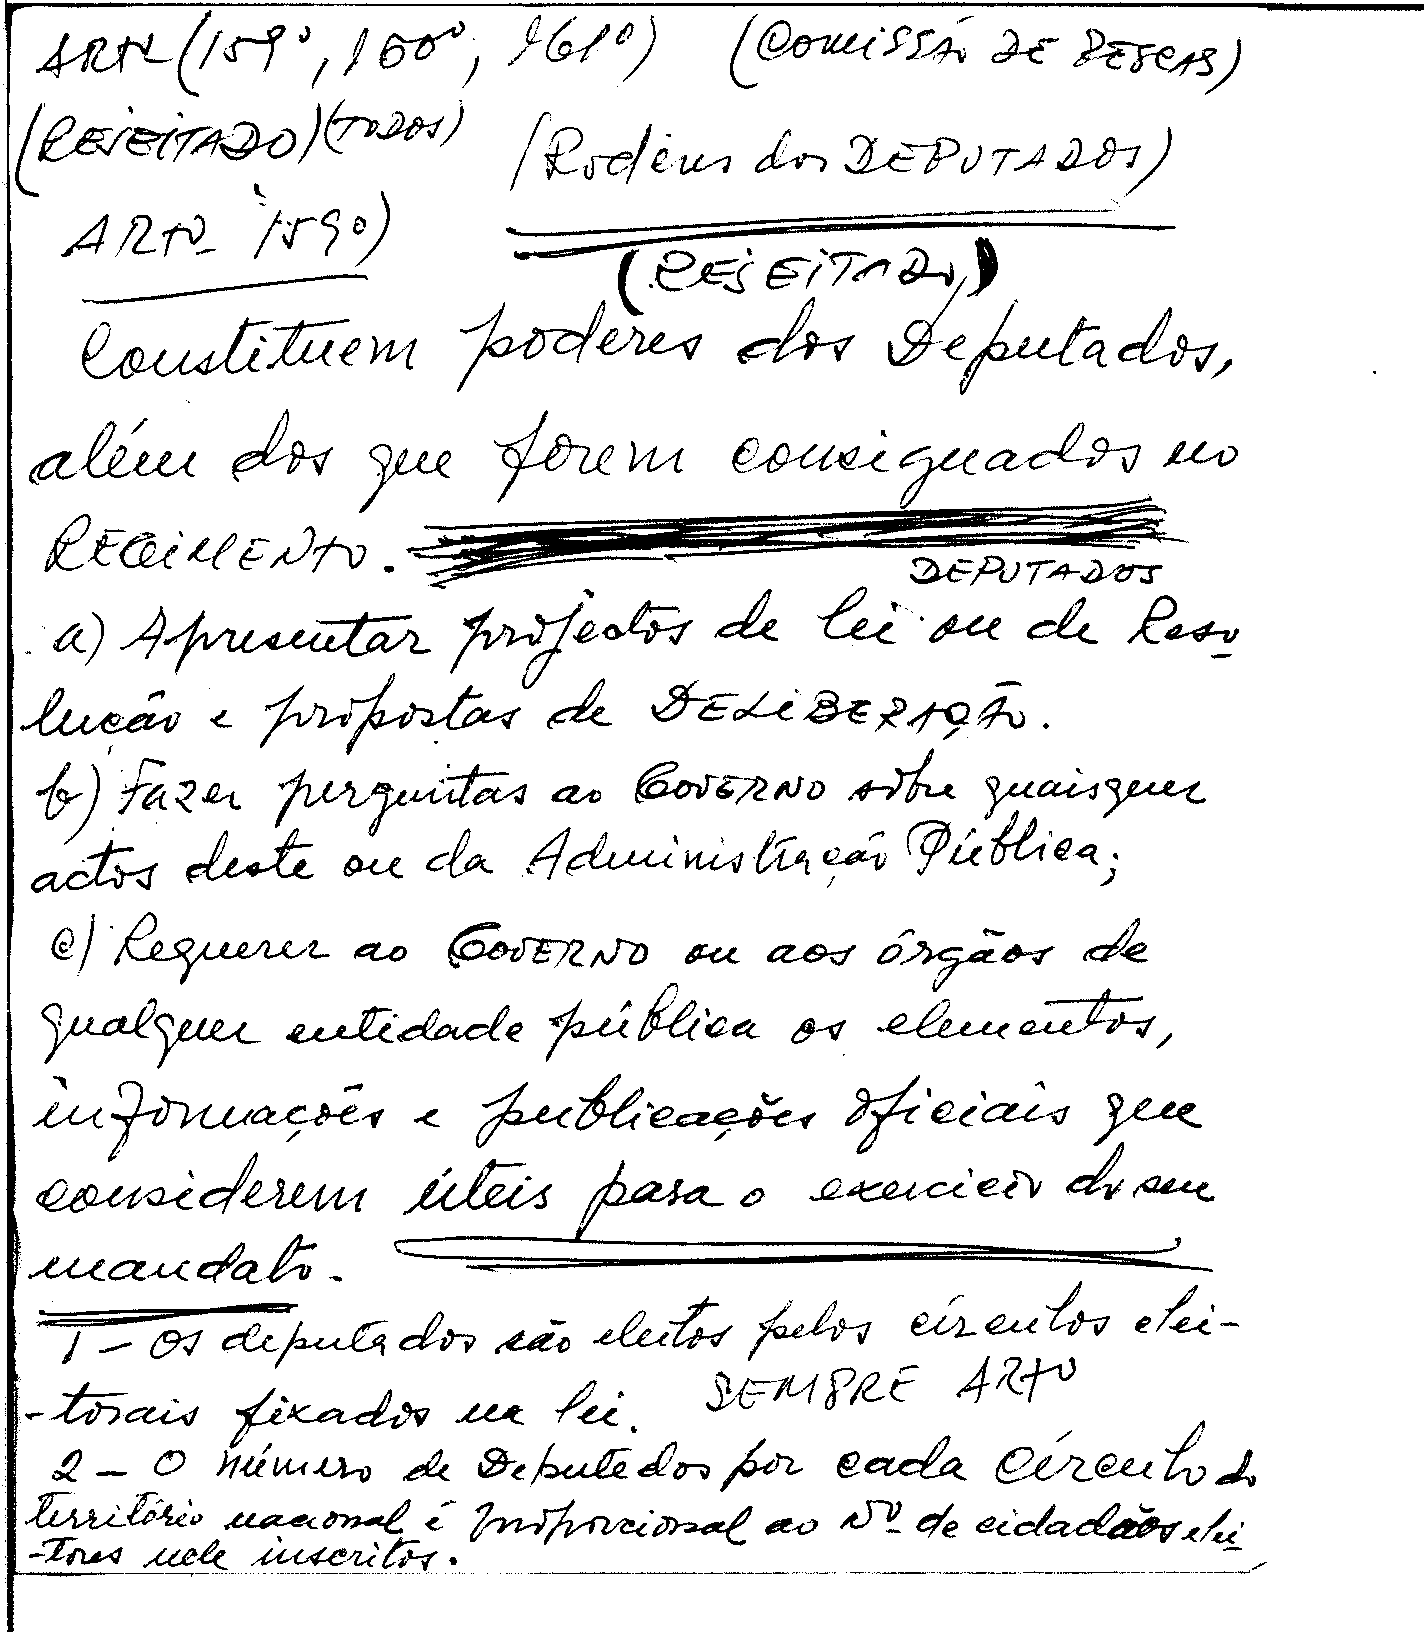 ARTº (159º, 160º, 161º) (COMISSÃO DE PESCAS)
(REJEITADO) (TODOS)
(Podêres dos DEPUTADOS)
ARTº 159º)
(REJEITADO)
Constituem poderes dos Deputados,
além dos que forem consignados no
REGIMENTO.
DEPUTADOS
a) Apresentar projectos de lei ou de Reso-
lução e propostas de DELIBERAÇÃO.
b) Fazer perguntas ao GOVERNO sôbre quaisquer
actos deste ou da Administração Pública;
c) Requerer ao GOVERNO ou aos órgãos de
qualquer entidade pública os elementos,
informações e publicações oficiais que
considerem úteis para o exercício do seu
mandato.
1 - Os deputados são eleitos pelos círculos elei-
-torais fixados na lei. SEMPRE ARTº
2 - O número de Deputados por cada Círculo do
território nacional é proporcional ao Nº de cidadãos elei-
-tores nele inscritos.